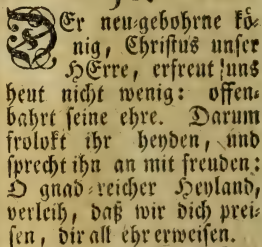 DEr neu-gebohrne kö-
nig, Christus unser
HErre, erfreut uns
heut nicht wenig: offen-
bahrt seine ehre. Darum
frolokt ihr heyden, und
sprecht ihn an mit freuden:
O gnad-reicher Heyland,
verleih, daß wir dich prei-
sen, dir all ehr erweisen.